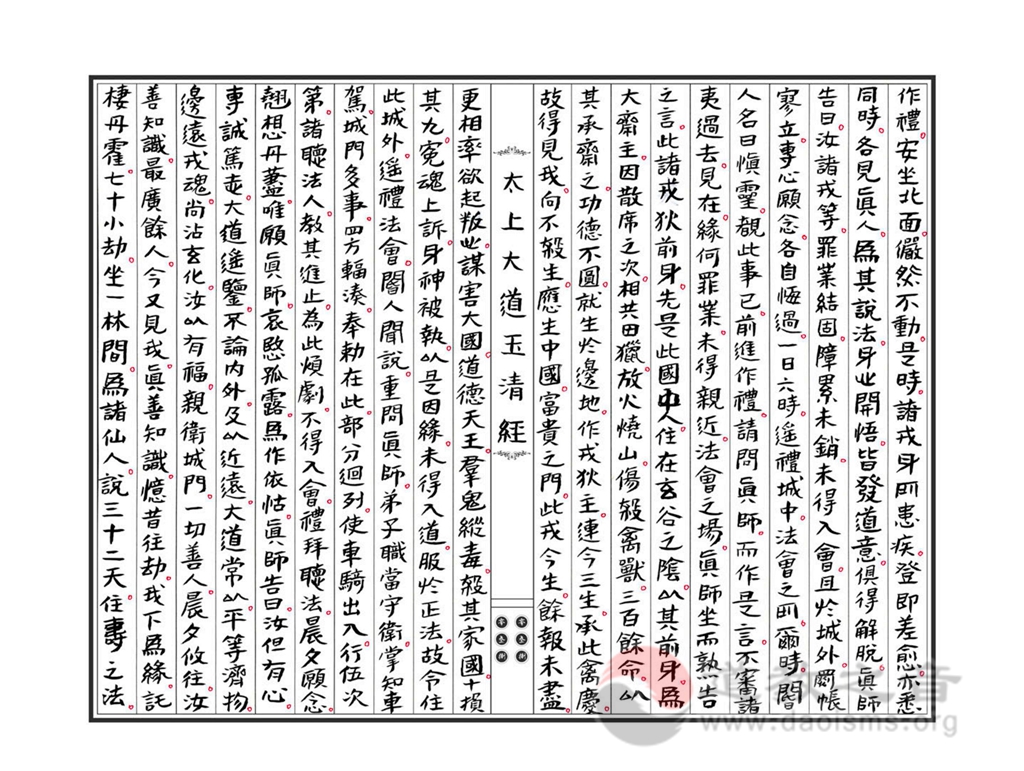 作禮安坐北面儼然不動是時諸戎身四患疾登即差愈亦悉
同時各見真人為其說法身世開悟皆發道意俱得解脫真師
告曰汝諸戎等罪業結固障累未銷未得入會且於城外罽帳
寥立專心願念各自悔過一日六時遙禮城中法會之四爾時閽
人名曰慎靈覩此事已前進作禮請問真師而作是言不審諸
夷過去見在緣何罪業未得親近法會之場真師坐而熟告
之言此諸戎狄前身先是此國中人住在玄谷之陰以其前身為
大齋主因散席之次相共田獵放火燒山傷殺禽獸三百餘命以
其承齋之功德不圓就生於邊地作戎狄主連今三生承此禽慶
故得見我向不殺生應生中國富貴之門此戎今生餘報未盡
太上大道玉清經
更相率欲起叛世謀害大國道德天王羣鬼縱毒殺其家國十損
其九冤魂上訴身神被執以是因緣未得入道服於正法故令住
此城外遙禮法會閽人聞說重問真師弟子職當守衛掌知車
駕城門多事四方輻湊奉勅在此部分迴列使車騎出入行伍次
第諸聽法人教其進止為此煩劇不得入會禮拜聽法晨夕願念
翹想丹藎唯願真師哀愍孤露為作依怙真師告曰汝但有心
專誠篤志大道遙鑒不論内外及以近遠大道常以平等濟物
邊遠戎魂尚沾玄化汝以有福親衛城門一切善人晨夕攸往汝
善知識最廣餘人今又見我真善知識憶昔往劫我下為緣託
棲丹霍七十小劫坐一林間為諸仙人說三十二天住壽之法
道教之音
www.daoisms.org